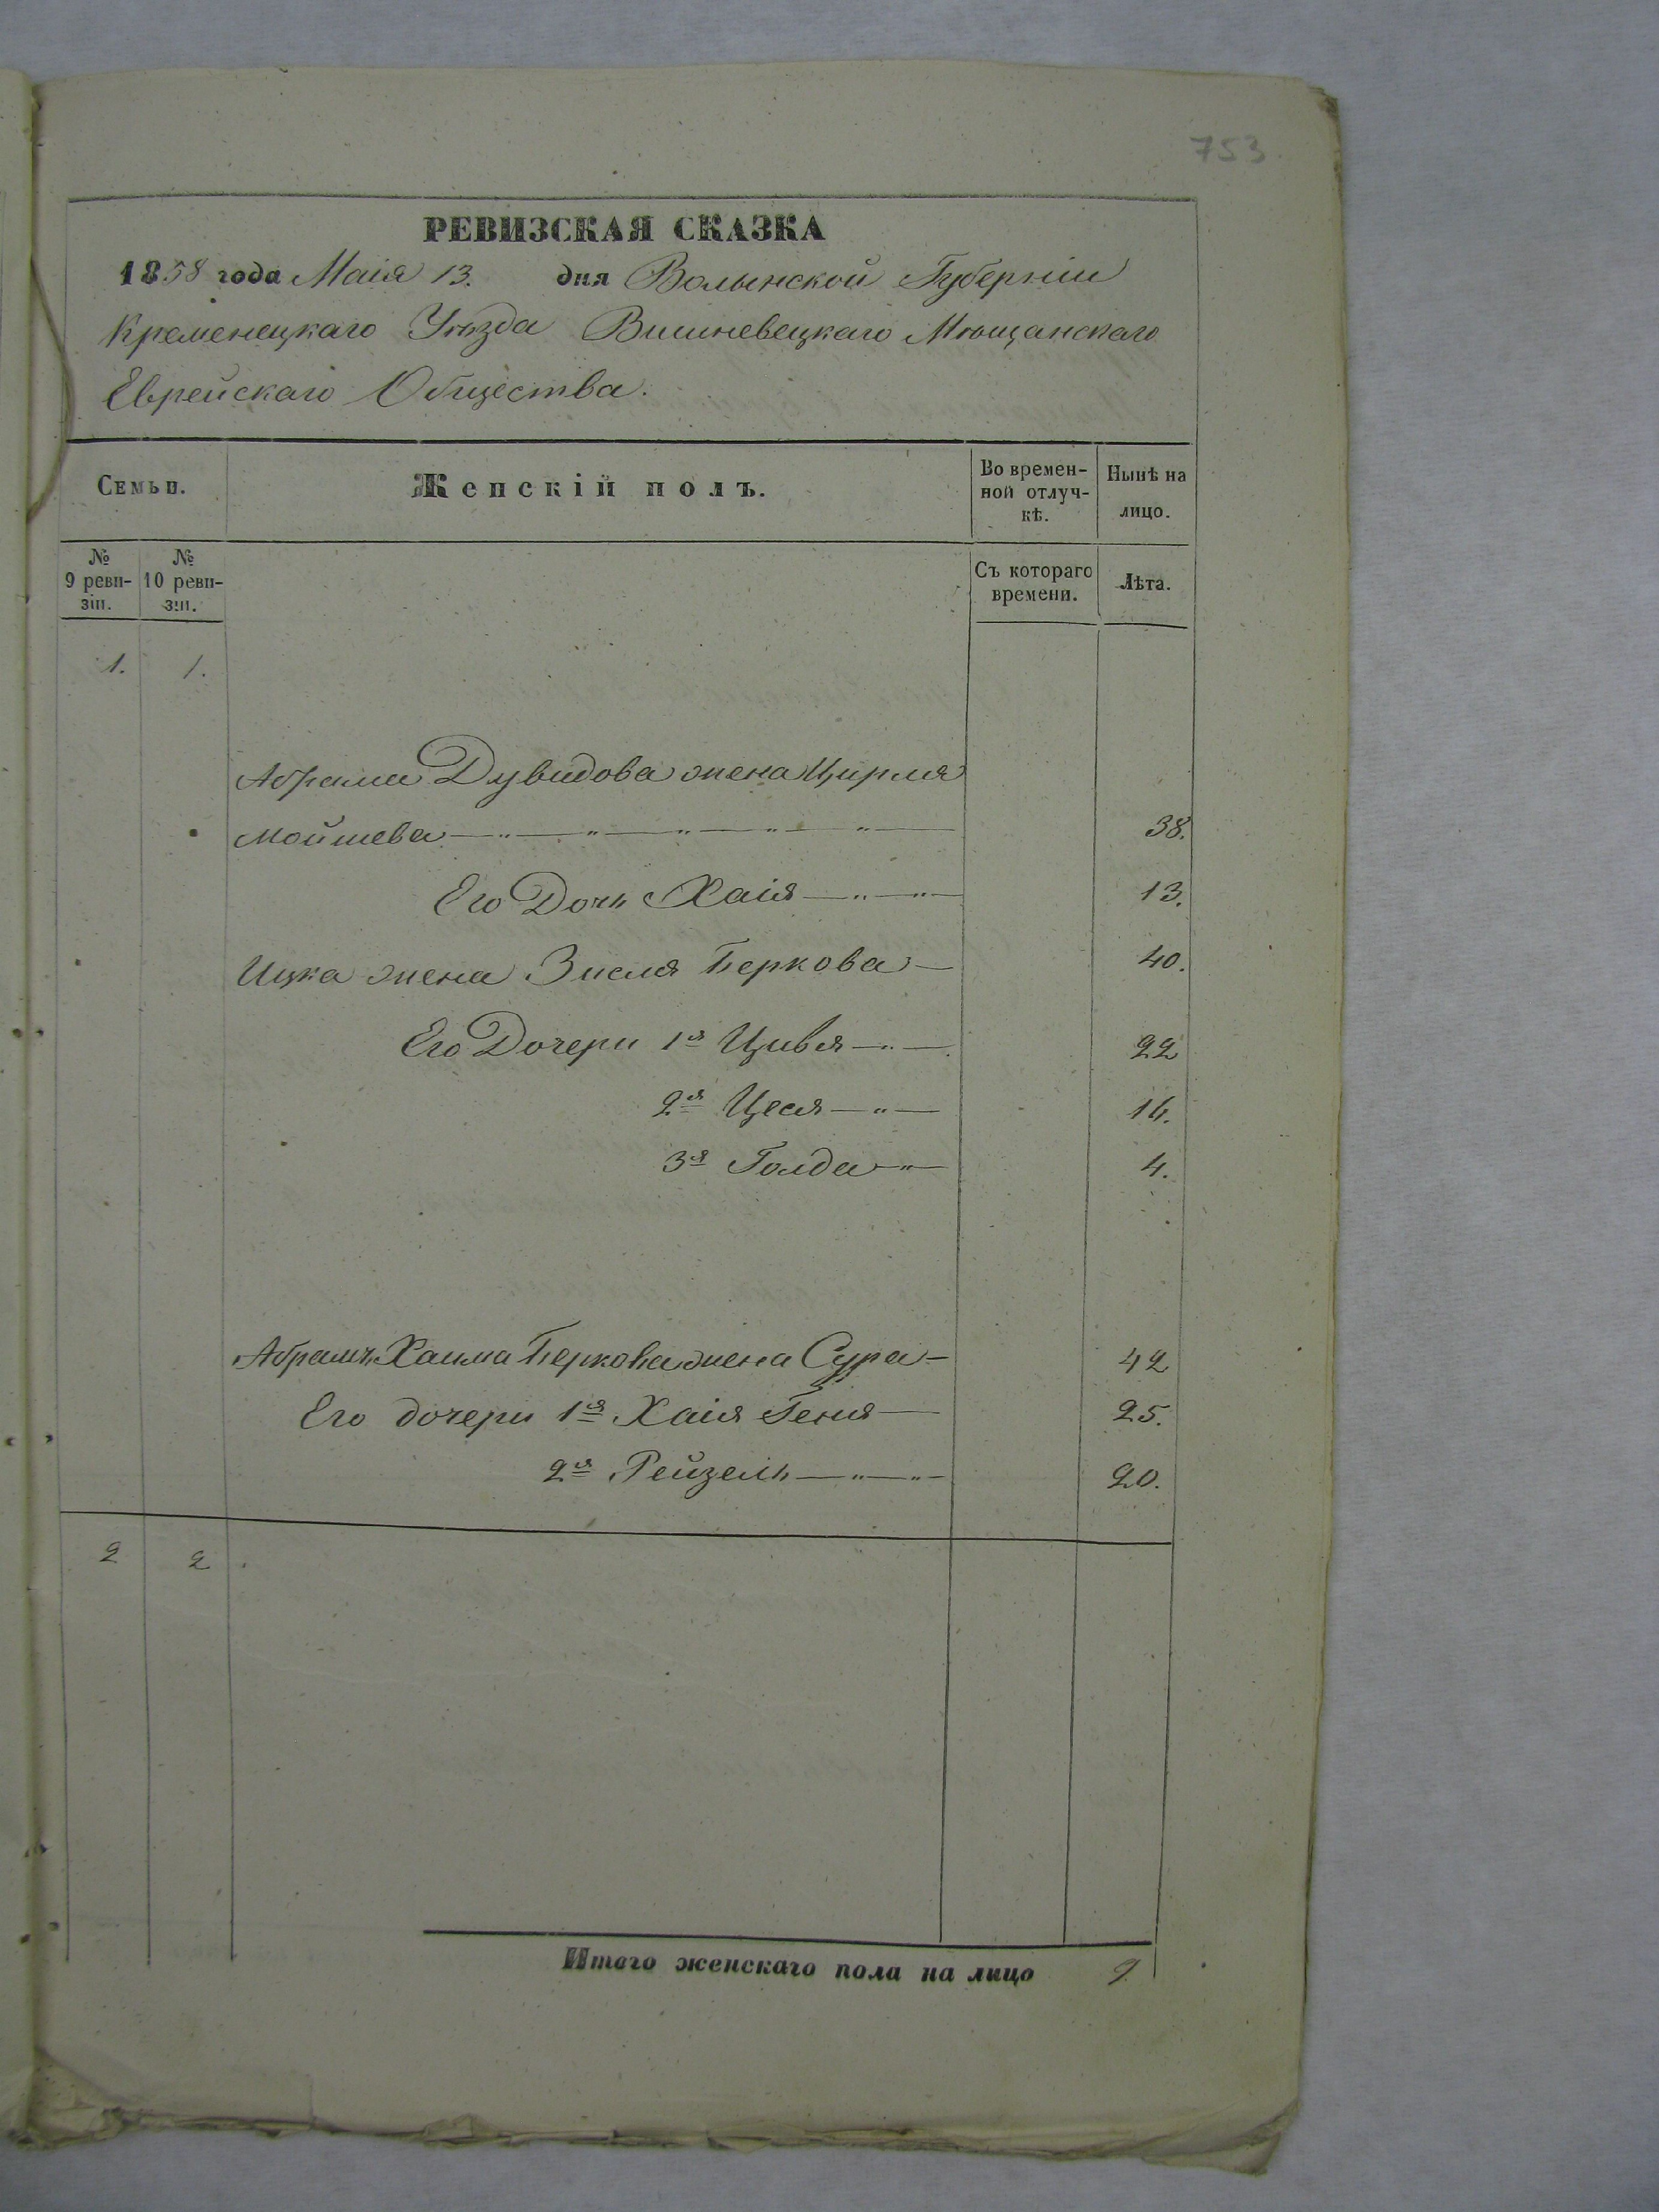 753
РЕВИЗСКАЯ СКАЗКА
1858 года Маія 13. дня Волынской Губерніи
Кременецкаго Уѣзда Вишневецкаго Мѣщанскаго
Еврейскаго Общества.
Семьи. Женскій полъ. Во времен- Нынѣ на
ной отлуч- лицо.
кѣ.
№ № Съ котораго Лѣта.
9 реви- 10 реви- времени.
зіи. зіи.
1. 1.
Абрама Дувидова жена Цирля
Мойшева 38.
Его Дочь Хаія 13.
Ицка жена Зисля Беркова 40.
Его Дочери 1я Цивя 22
2я Цеся 14.
3я Голда 4.
Абрамъ Хаима Беркова жена Сура 42
Его дочери 1я Хаія Геня 25.
2я Рейзель 20.
2 2.
Итого женскаго пола на лицо 9